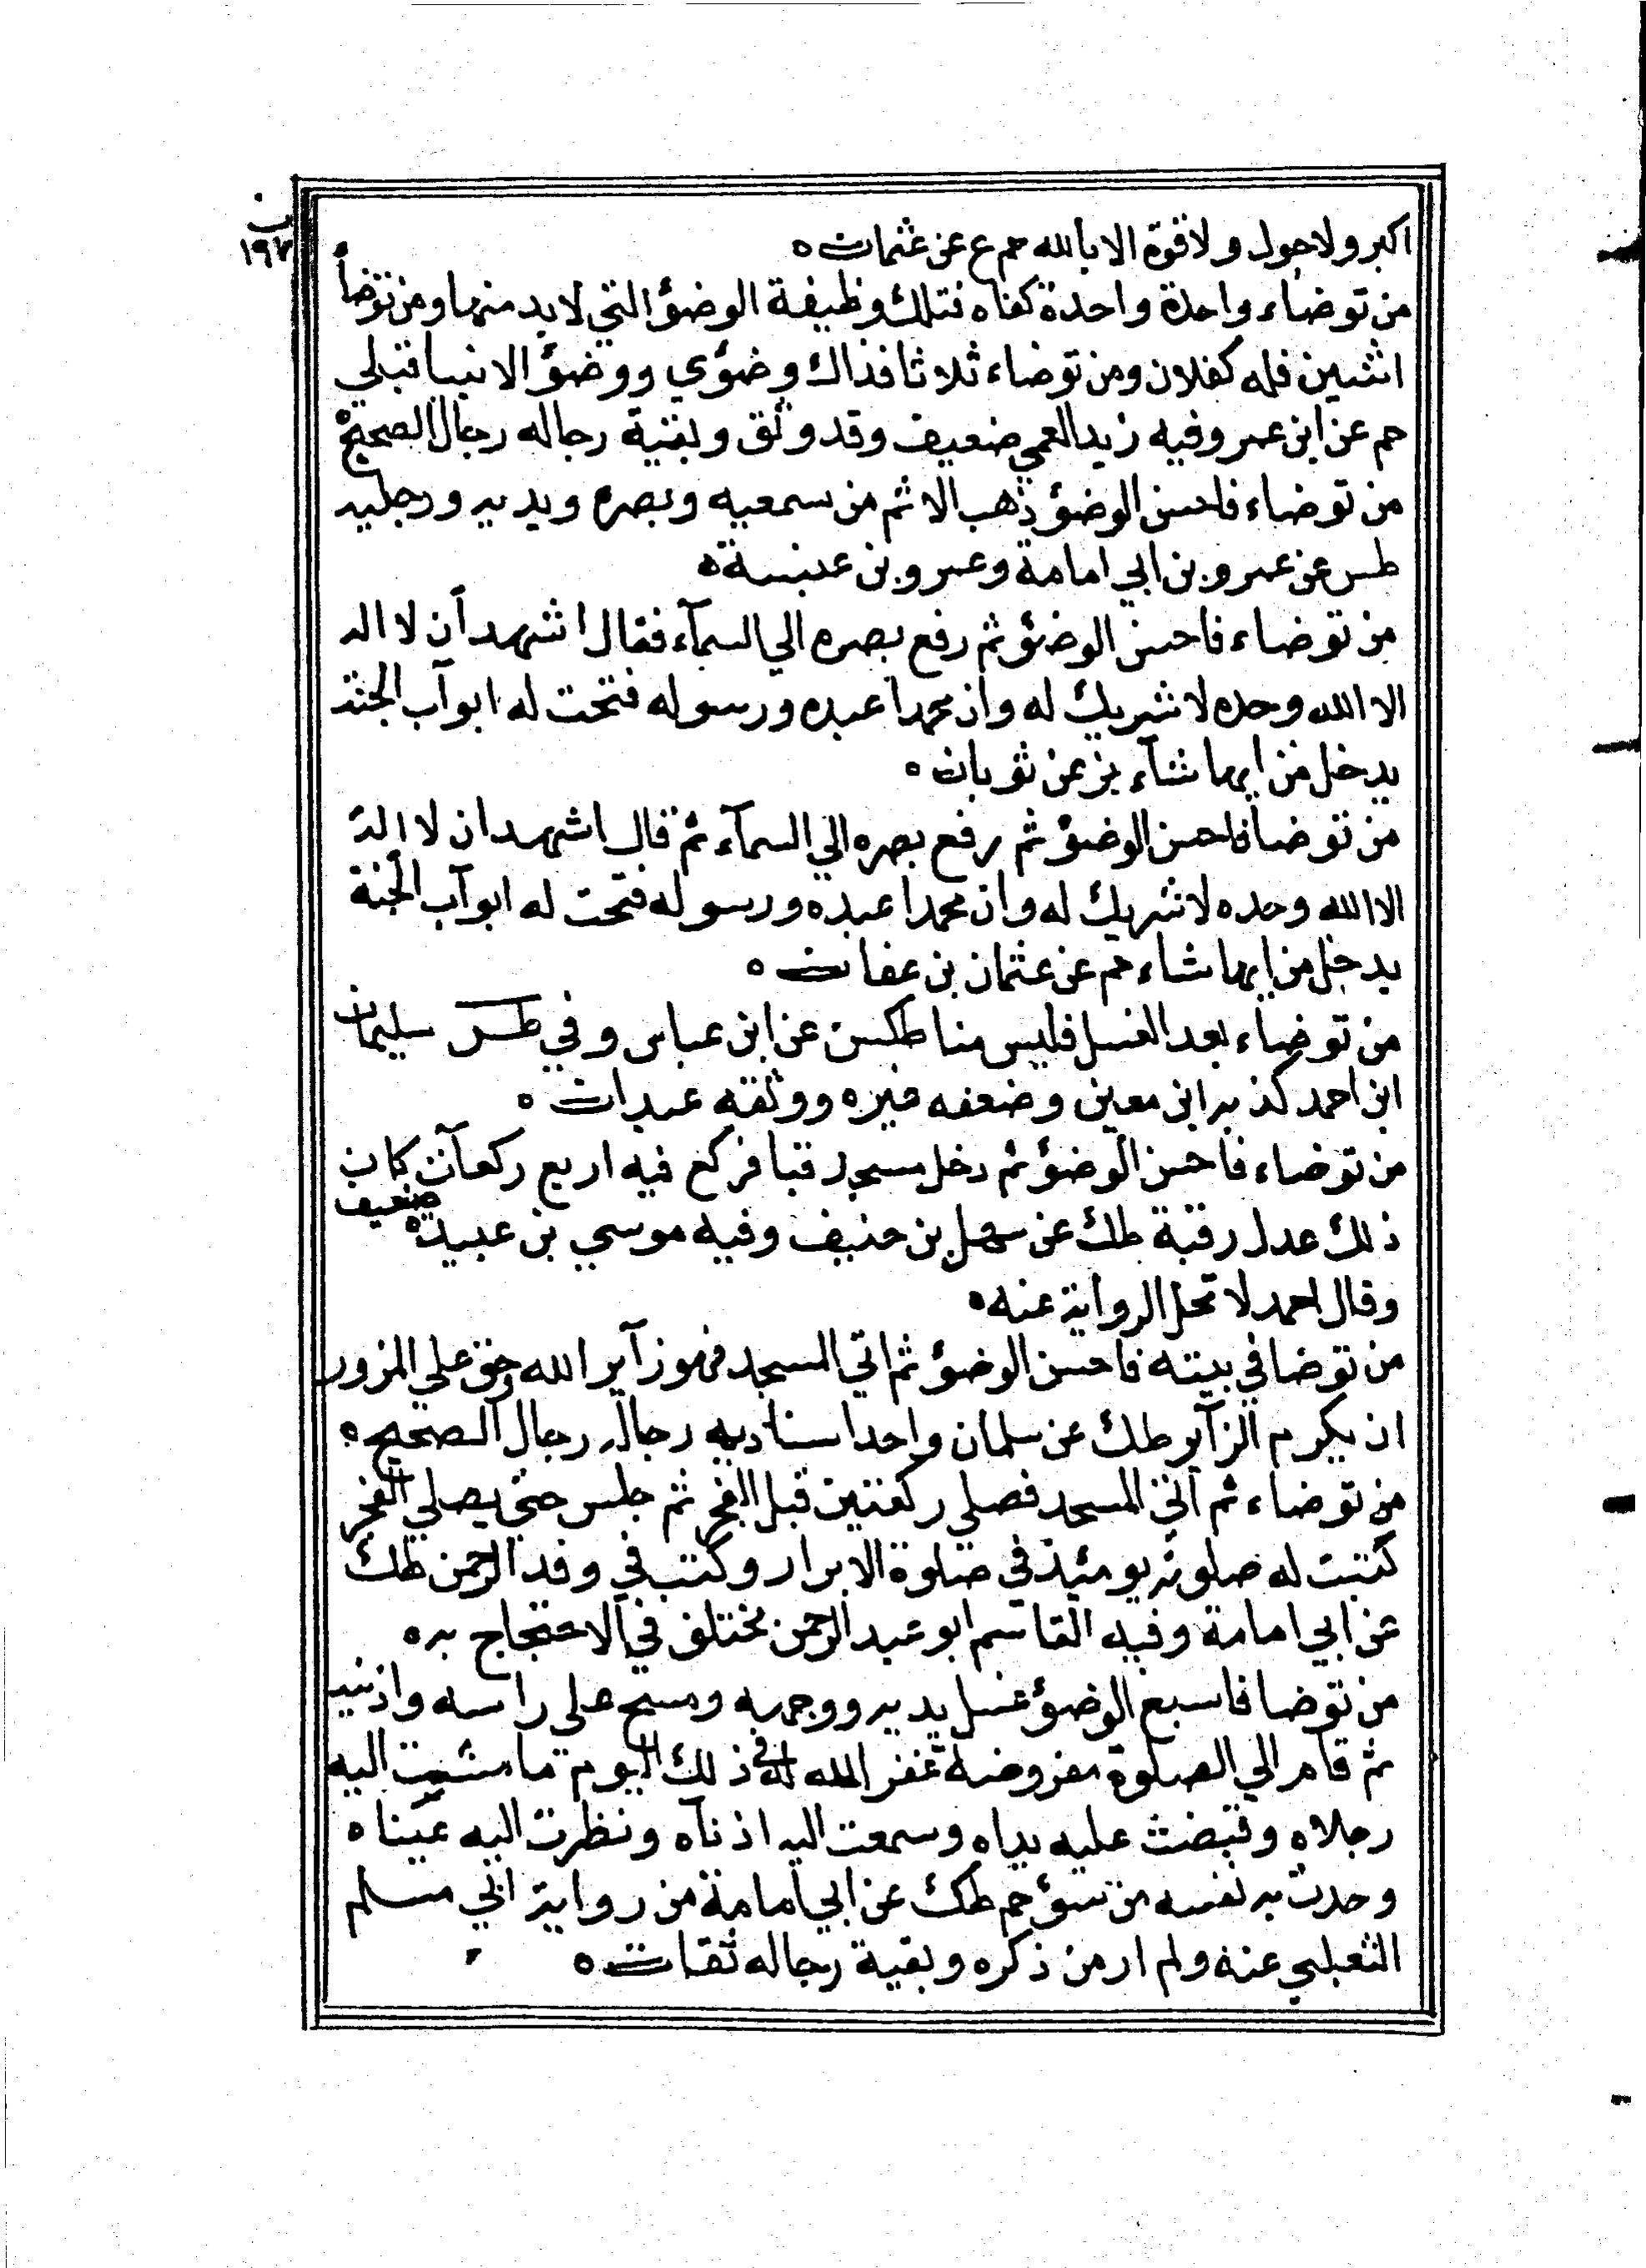 ب
١٩٧
اكبر ولا حول ولا قوة الا بالله حم ع عن عثمان ه
من توضاء واحدة واحدة كفاه فتلك وظيفة الوضؤ التي لا بد منها ومن توضأ
اثنين فله كفلان ومن توضاء ثلاثا فذاك وضؤي ووضؤ الانبيا قبلي
حم عن ابن عمر وفيه زيد العمي ضعيف وقد وثق وبقية رجاله رجال الصحيح
من توضاء فاحسن الوضؤ ذهب الاثم من سمعيه وبصره ويديه ورجليه
طس عن عمرو بن ابي امامة وعمرو بن عنبسة ه
من توضاء فاحسن الوضؤ ثم رفع بصره الي السمآء فقال اشهد أن لا اله
الا الله وحده لا شريك له وان محمدا عبده ورسوله فتحت له ابوآب الجنة
يدخل من ايها شآء بز عن ثوبان ه
من توضأ فاحسن الوضؤ ثم رفع بصره الي السمآء ثم قال اشهد ان لا اله
الا الله وحده لا شريك له وان محمدا عبده ورسوله فتحت له ابوآب الجنة
يدخل من ايها شاء حم عن عثمان بن عفان ه
من توضاء بعد الغسل فليس منا طكس عن ابن عباس وفي طس سليمان
ابن احمد كذبه ابن معين وضعفه غيره ووثقه عبدان ه
من توضاء فاحسن الوضؤ ثم دخل مسجد قبا فركع فيه اربع ركعآت كان
ذلك عدل رقبة طك عن سهل بن حنيف وفيه موسي بن عبيدة ضعيف
وقال احمد لا تحل الرواية عنه ه
من توضا في بيته فاحسن الوضؤ ثم اتي المسجد فهو زآير الله وحق علي المزور
ان يكرم الزآير طك عن سلمان واحد اسناديه رجاله رجال الصحيح ه
من توضاء ثم اتي المسجد فصلي ركعتين قبل الفجر ثم جلس حتي يصلي الفجر
كتبت له صلوته يومئذ في صلوة الابرار وكتب في وفد الرحمن طك
عن ابي امامة وفيه القاسم ابو عبد الرحمن مختلف في الاحتجاج به ه
من توضا فاسبع الوضؤ غسل يديه ووجهه ومسح علي راسه واذنيه
ثم قام الي الصلوة مفروضة غفر الله له في ذلك اليوم ما مشت اليه
رجلاه وقبضت عليه يداه وسمعت اليه اذنآه ونظرت اليه عيناه
وحدث به نفسه من سؤ حم طك عن ابي امامة من رواية ابي مسلم
الثعبلي عنه ولم ار من ذكره وبقية رجاله ثقات ه